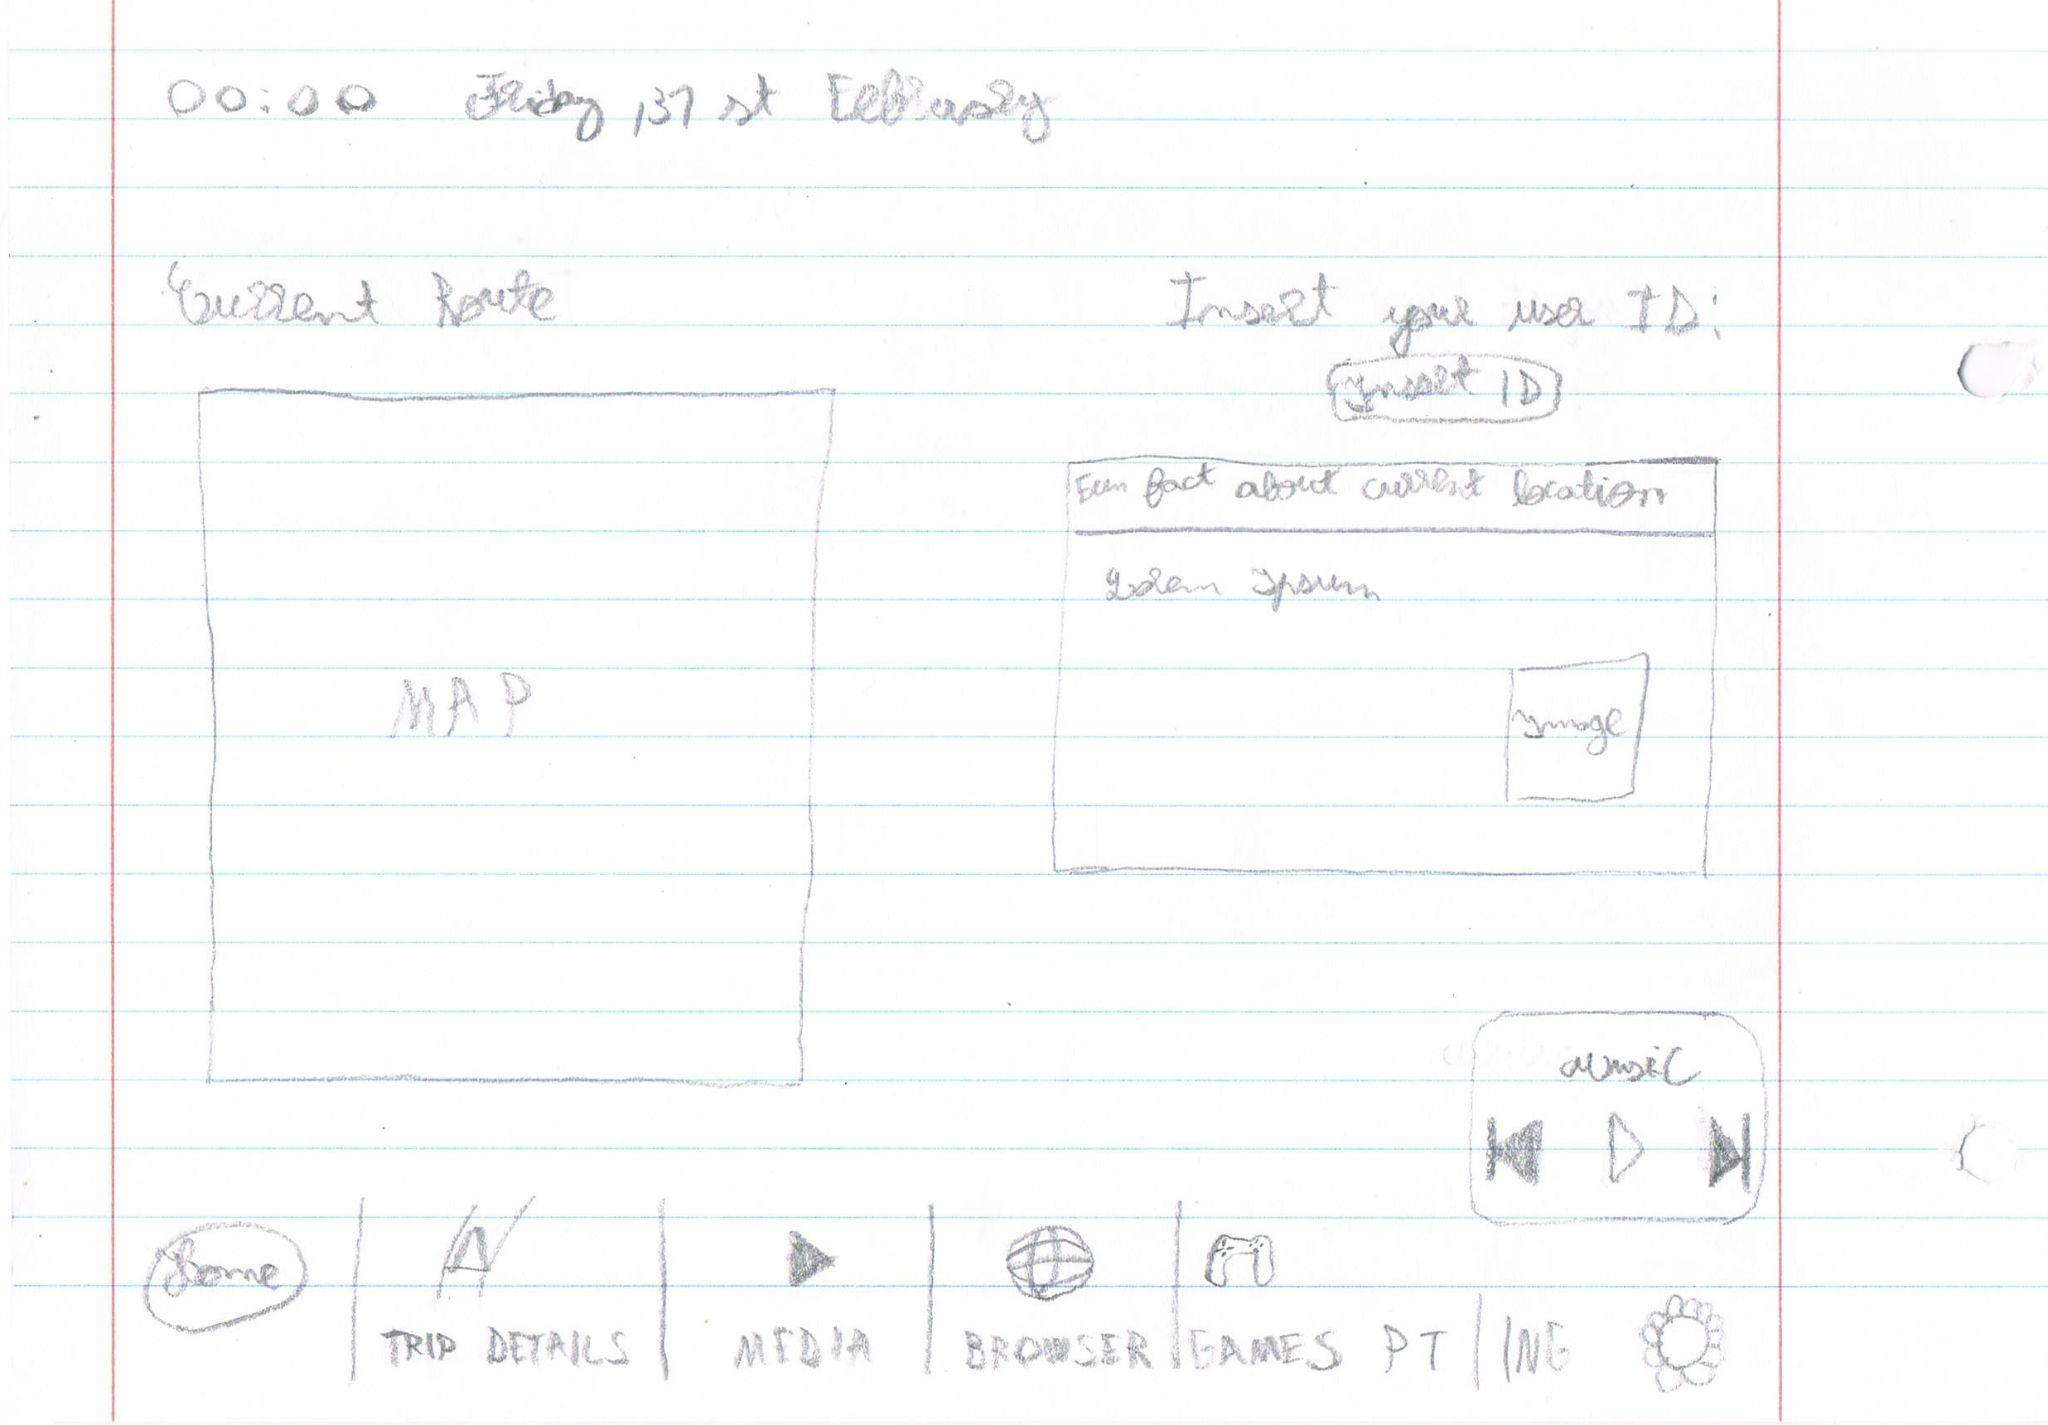 00:00 Friday, 31 st February
Current Route
Insert your user ID:
Insert ID
Fun fact about current location
Lorem Ipsum
MAP
Image
Music
Home
TRIP DETAILS
MEDIA
BROWSER
GAMES
PT | ING